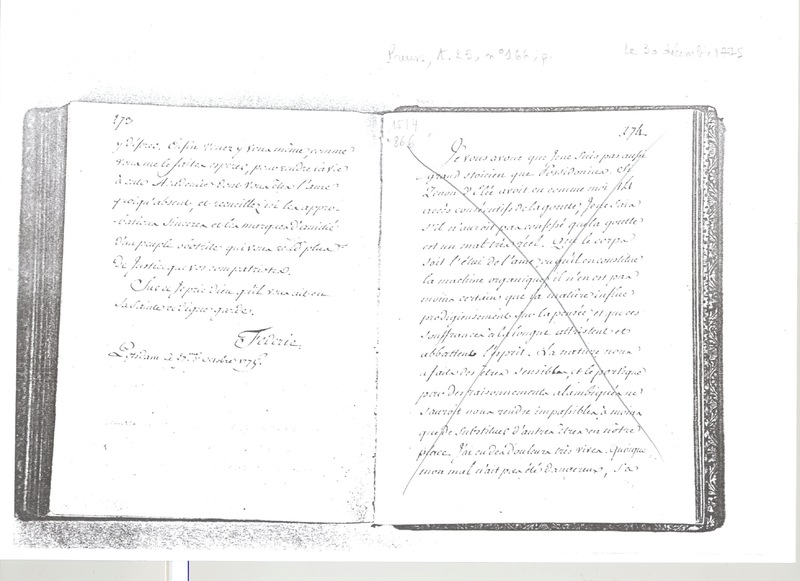 Preuss, t. 25, n° 166, p.
le 30 décembre 1775
173
y désirés. Enfin venez y vous même, comme
vous me le faites espérer, pour rendre la vie
à cette Academie dont vous êtes l'ame
quoiqu'absent, et recueillez ici les appro-
bations sinceres et les marques d'amitié
d'un peuple obotrite qui vous rend plus
de Justice que vos compatriotes.
Sur ce Je prie Dieu qu'il vous ait en
Sa Sainte et digne garde.
Federic.
Potsdam à
174.
1514
866
Je vous avoue que Je ne suis pas aussi
grand stoicien que Possidonius. Si
Zenon d'Elé avoit eu comme moi 14
accès consécutifs de la goutte, Je ne sais
s'il n'auroit pas confessé que la goutte
est un mal très réel. Que le corps
soit l'étui de l'ame ou qu'il en constitue
la machine organique il n'en est pas
moins certain que la matière influe
prodigieusement sur la pensée; et que ces
souffrances à la longue attristent et
abbattent l'Esprit. La nature nous
a faits des êtres sensibles, et le portique
par des raisonnements alambiqués ne
sauroit nous rendre impassibles à moins
que de substituer d'autres êtres en nôtre
place. J'ai eu des douleurs très vives. Quoique
mon mal n'ait pas été dangereux, J'a